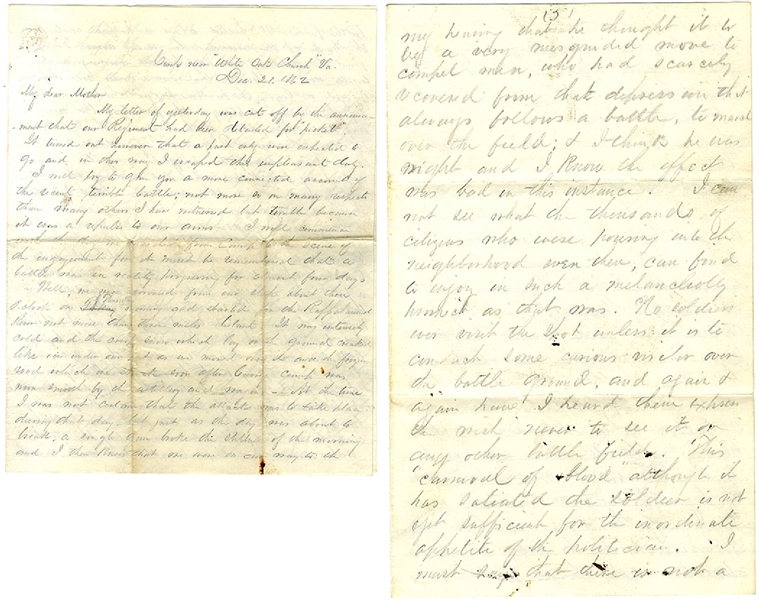 Camp near White Oak Church Va.
Dec. 21. 1862
My dear Mother
My letter of yesterday was cut off by the announce-
-ment that our Regiment had been detailed for "picket".
It turned out however that a part only were expected to
go and in this way I escaped this unpleasant duty.
I will try to give you a more connected account of
the terrible battle; not more so in many respects
than many others I have witnessed but terrible because
it was a repulse to our arms. I will commence
from Camp to the scene of
the engagement for it must be remembered that a
battle was in reality progressing for about four days
- Well, we moved from our about three
O'clock on Thursday morning and started for the Rappahannock
River not more than three miles distant. It was intensely
cold and the snow which lay on the ground creaked
like ice under our feet as we
road which we soon after Camp was
worn smooth by the artillery and - At the time
I was not certain that the attack was to take place
during that day, but just as the day was about to
break, a single gun broke the stillness of the morning
and I then knew that we were on our way to the
(5)
my hearing that he thought it to
be a very misguided move to
compel men, who had scarcely
recovered from that depression that
always follows a battle, to march
over the field; & I think he was
right and I know the effect
was bad in this instance. I can
not see what the thousands of
citizens who were pouring into the
neighborhood even then, can find
to enjoy in such a melancholly
prospect as that was. No soldiers
ever visit the spot unless it is to
conduct some curious visitor over
the battle ground, and again &
again have I heard them express
the wish never to see it or
any other battle field. This
"carnival of blood" although it
has satiated the soldier is not
yet sufficient for the inordinate
appetite of the politician. I
must say that there is not a